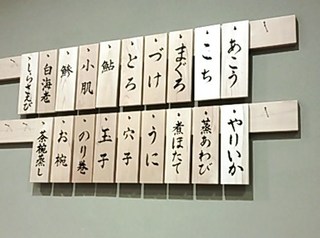 あこう
こち
まぐろ
づけ
とろ
鮎
小肌
鯵
白海老
しらさえび
やりいか
蒸あわび
煮ほたて
うに
穴子
玉子
のり巻
お椀
茶碗蒸し